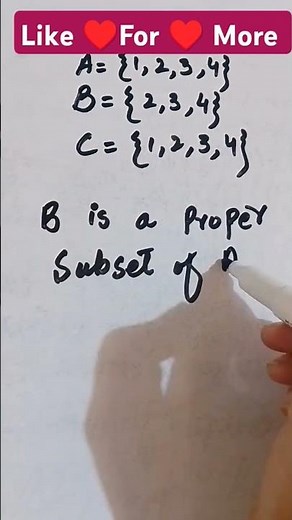 Like ❤️For ❤️ More
A = {1, 2, 3, 4}
B = { 2, 3, 4}
C = {1, 2, 3, 4}
B is a Proper
Subset of